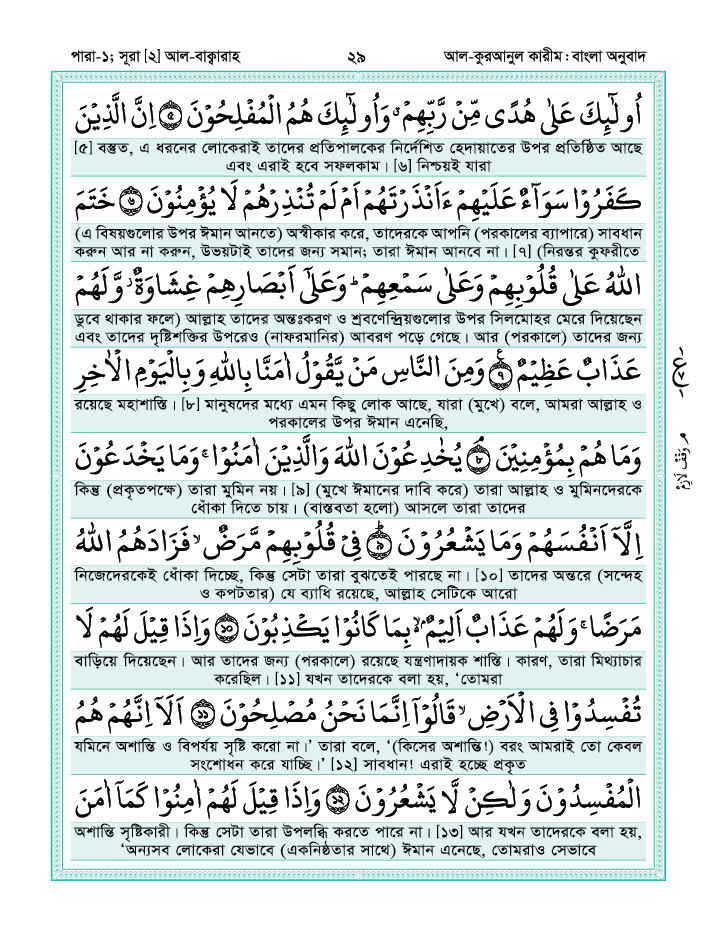 পারা-১; সূরা [২] আল-বাক্বারাহ ২৯ আল-কুরআনুল কারীম : বাংলা অনুবাদ
اُولٰٓئِكَ عَلٰى هُدًى مِّنْ رَّبِّهِمْ ۙ وَاُولٰٓئِكَ هُمُ الْمُفْلِحُوْنَ ۝৫ اِنَّ الَّذِيْنَ
[৫] বস্তুত, এ ধরনের লোকেরাই তাদের প্রতিপালকের নির্দেশিত হেদায়াতের উপর প্রতিষ্ঠিত আছে
এবং এরাই হবে সফলকাম। [৬] নিশ্চয়ই যারা
كَفَرُوْا سَوَآءٌ عَلَيْهِمْ ءَاَنْذَرْتَهُمْ اَمْ لَمْ تُنْذِرْهُمْ لَا يُؤْمِنُوْنَ ۝৬ خَتَمَ
(এ বিষয়গুলোর উপর ঈমান আনতে) অস্বীকার করে, তাদেরকে আপনি (পরকালের ব্যাপারে) সাবধান
করুন আর না করুন, উভয়টাই তাদের জন্য সমান; তারা ঈমান আনবে না। [৭] (নিরন্তর কুফরীতে
اللّٰهُ عَلٰى قُلُوْبِهِمْ وَعَلٰى سَمْعِهِمْ ؕ وَعَلٰٓى اَبْصَارِهِمْ غِشَاوَةٌ ؗ وَّلَهُمْ
ডুবে থাকার ফলে) আল্লাহ তাদের অন্তঃকরণ ও শ্রবণেন্দ্রিয়গুলোর উপর সিলমোহর মেরে দিয়েছেন
এবং তাদের দৃষ্টিশক্তির উপরেও (নাফরমানির) আবরণ পড়ে গেছে। আর (পরকালে) তাদের জন্য
عَذَابٌ عَظِيْمٌ ۝৭ وَمِنَ النَّاسِ مَنْ يَّقُوْلُ اٰمَنَّا بِاللّٰهِ وَبِالْيَوْمِ الْاٰخِرِ
রয়েছে মহাশাস্তি। [৮] মানুষদের মধ্যে এমন কিছু লোক আছে, যারা (মুখে) বলে, আমরা আল্লাহ ও
পরকালের উপর ঈমান এনেছি,
وَمَا هُمْ بِمُؤْمِنِيْنَ ۝৮ يُخٰدِعُوْنَ اللّٰهَ وَالَّذِيْنَ اٰمَنُوْا ۚ وَمَا يَخْدَعُوْنَ
م وقف لازم
কিন্তু (প্রকৃতপক্ষে) তারা মুমিন নয়। [৯] (মুখে ঈমানের দাবি করে) তারা আল্লাহ ও মুমিনদেরকে
ধোঁকা দিতে চায়। (বাস্তবতা হলো) আসলে তারা তাদের
اِلَّآ اَنْفُسَهُمْ وَمَا يَشْعُرُوْنَ ۝৯ فِيْ قُلُوْبِهِمْ مَّرَضٌ ۙ فَزَادَهُمُ اللّٰهُ
নিজেদেরকেই ধোঁকা দিচ্ছে, কিন্তু সেটা তারা বুঝতেই পারছে না। [১০] তাদের অন্তরে (সন্দেহ
ও কপটতার) যে ব্যাধি রয়েছে, আল্লাহ সেটিকে আরো
مَرَضًا ۚ وَلَهُمْ عَذَابٌ اَلِيْمٌۢ ۙ بِمَا كَانُوْا يَكْذِبُوْنَ ۝১০ وَاِذَا قِيْلَ لَهُمْ لَا
বাড়িয়ে দিয়েছেন। আর তাদের জন্য (পরকালে) রয়েছে যন্ত্রণাদায়ক শাস্তি। কারণ, তারা মিথ্যাচার
করেছিল। [১১] যখন তাদেরকে বলা হয়, ‘তোমরা
تُفْسِدُوْا فِى الْاَرْضِ ۙ قَالُوْٓا اِنَّمَا نَحْنُ مُصْلِحُوْنَ ۝১১ اَلَآ اِنَّهُمْ هُمُ
যমিনে অশান্তি ও বিপর্যয় সৃষ্টি করো না।’ তারা বলে, ‘(কিসের অশান্তি!) বরং আমরাই তো কেবল
সংশোধন করে যাচ্ছি।’ [১২] সাবধান! এরাই হচ্ছে প্রকৃত
الْمُفْسِدُوْنَ وَلٰكِنْ لَّا يَشْعُرُوْنَ ۝১২ وَاِذَا قِيْلَ لَهُمْ اٰمِنُوْا كَمَآ اٰمَنَ
অশান্তি সৃষ্টিকারী। কিন্তু সেটা তারা উপলব্ধি করতে পারে না। [১৩] আর যখন তাদেরকে বলা হয়,
‘অন্যসব লোকেরা যেভাবে (একনিষ্ঠতার সাথে) ঈমান এনেছে, তোমরাও সেভাবে